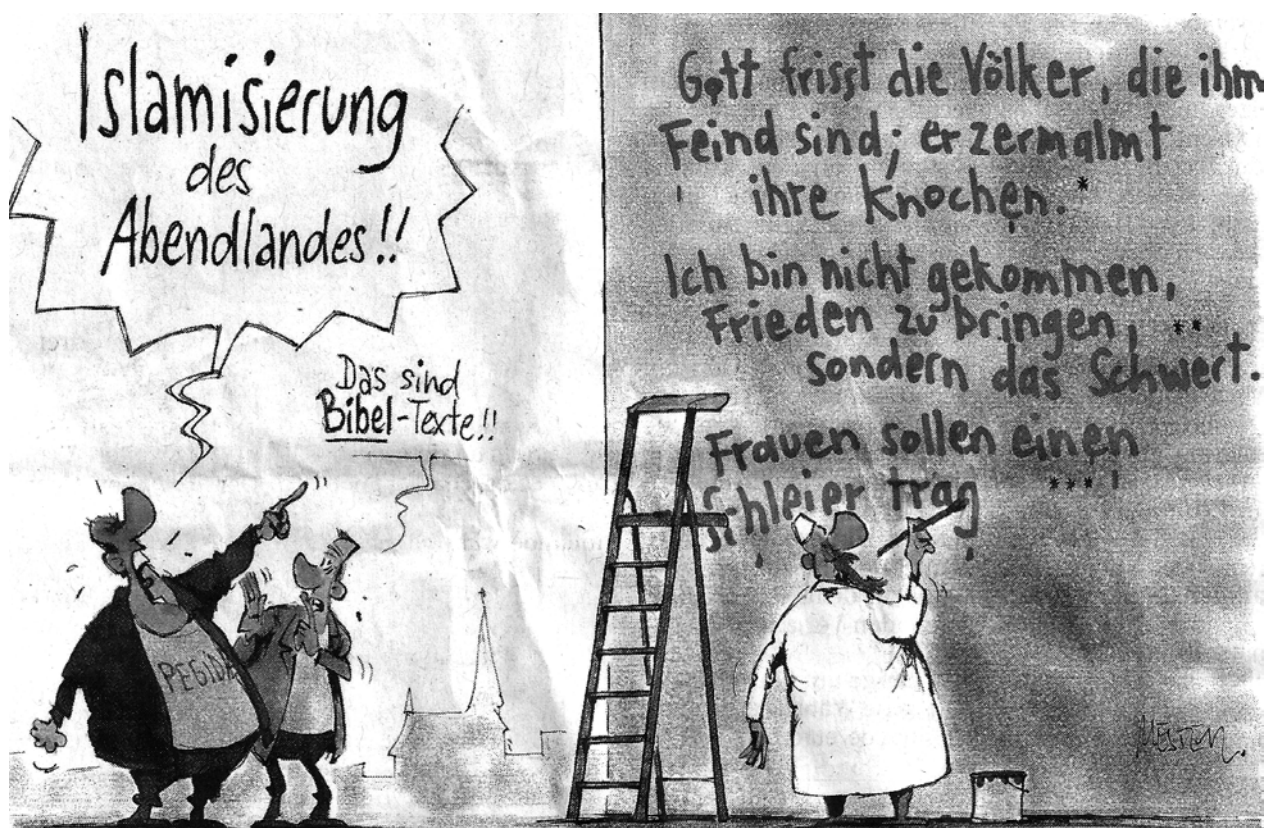 Islamisierung
des
Abendlandes!!
Das sind
Bibel-Texte!!
PEGIDA
Gott frisst die Völker, die ihm
Feind sind; er zermalmt
ihre Knochen.*
Ich bin nicht gekommen,
Frieden zu bringen, **
sondern das Schwert.
Frauen sollen einen
Schleier trag ***
MESTER.